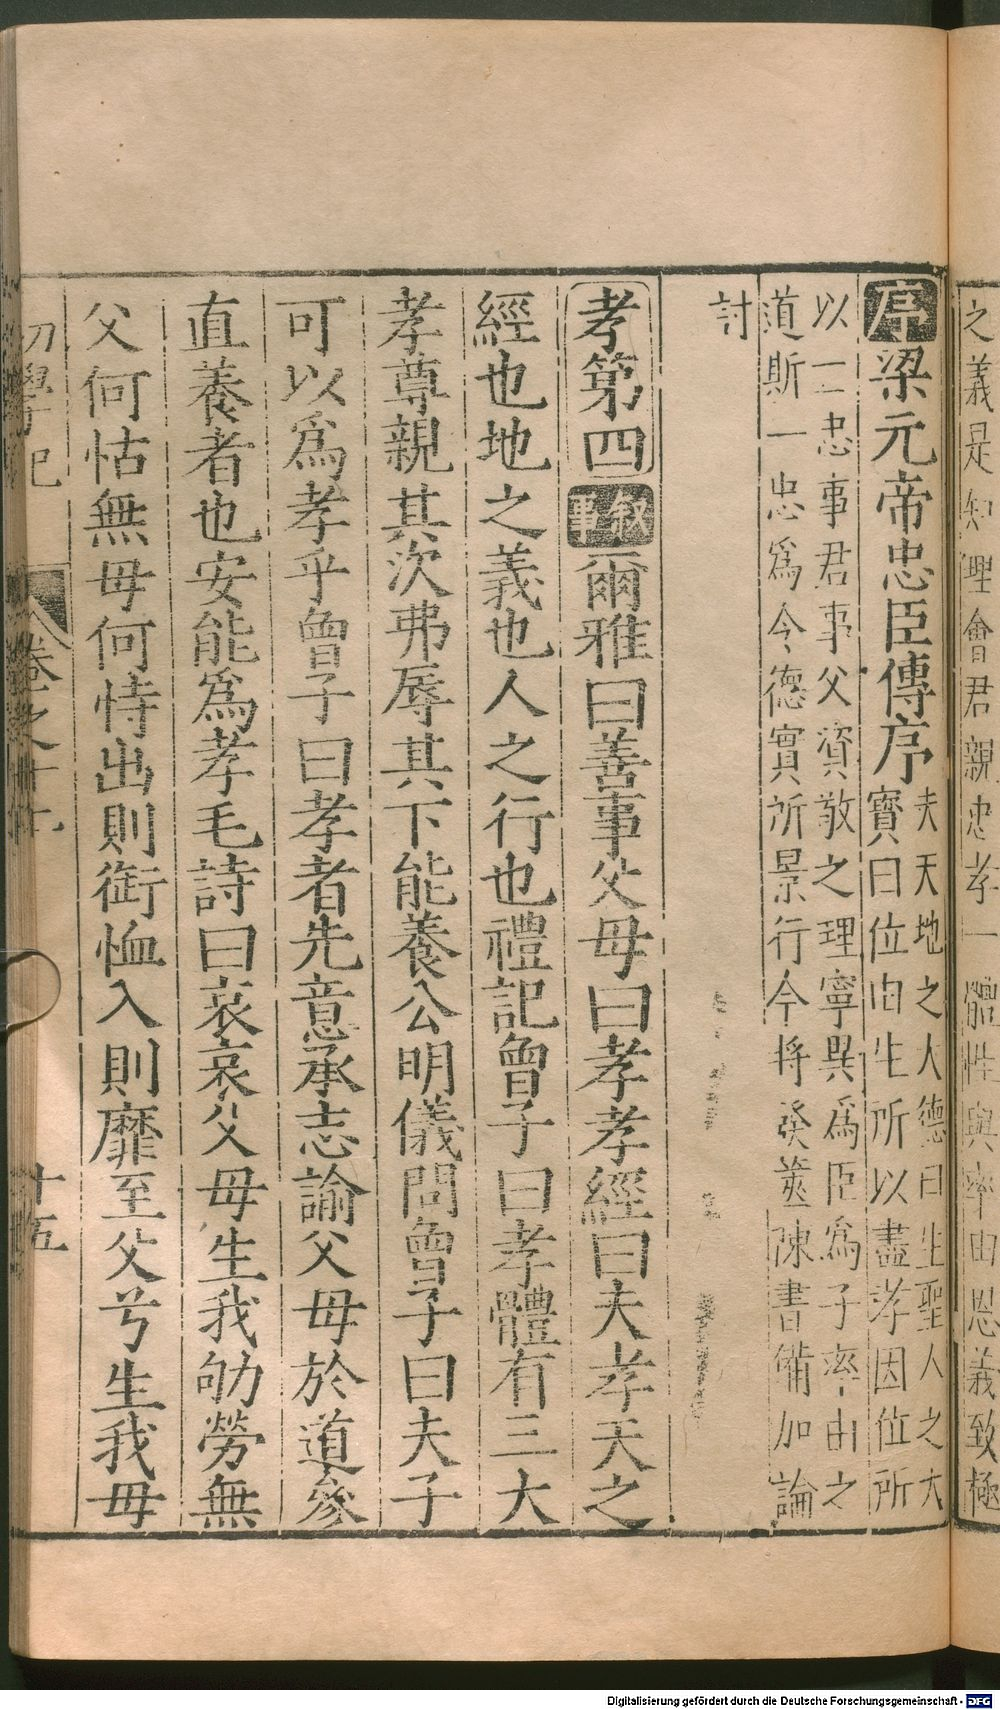 之義是知理會君親忠孝一體性與率由恩義致極
序梁元帝忠臣傳序夫天地之大德曰生聖人之大
寳曰位由生所以盡孝因位所
以立忠事君事父資敬之理寧異爲臣爲子率由之
道斯一忠爲令德實所景行今將發篋陳書備加論
討
孝第四敘事爾雅曰善事父母曰孝孝經曰夫孝天之
經也地之義也人之行也禮記曾子曰孝體有三大
孝尊親其次弗辱其下能養公明儀問曾子曰夫子
可以爲孝乎曾子曰孝者先意承志諭父母於道參
直養者也安能爲孝毛詩曰哀哀父母生我劬勞無
父何怙無母何恃出則銜恤入則靡至父兮生我母
初學記 卷之十七 十五
Digitalisierung gefördert durch die Deutsche Forschungsgemeinschaft - DFG